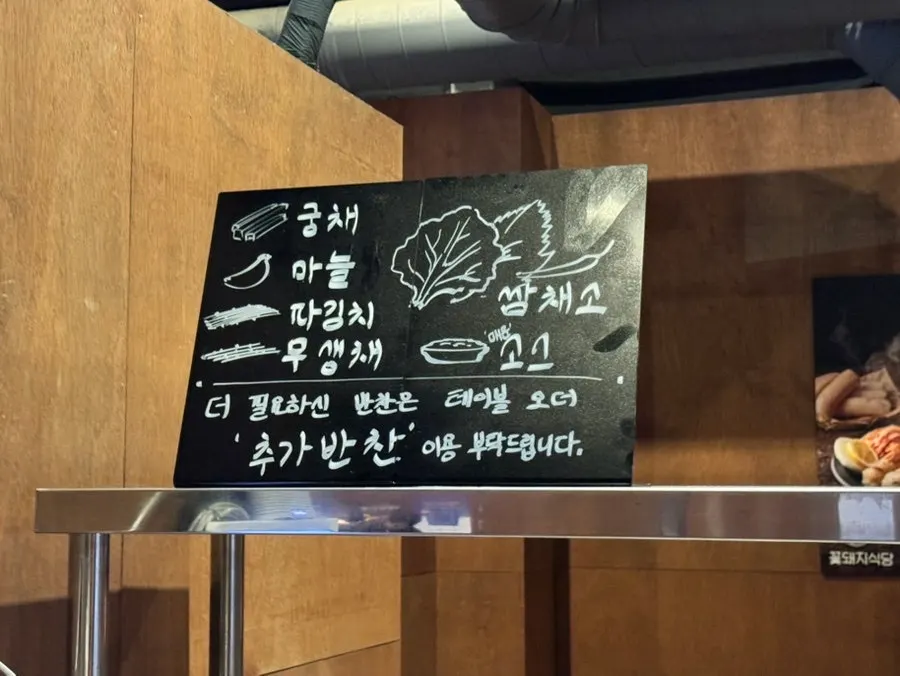 궁채
마늘
파김치
무생채
쌈채소
'매운'
소스
더 필요하신 반찬은 테이블 오더
'추가반찬' 이용 부탁드립니다.
꽃돼지식당